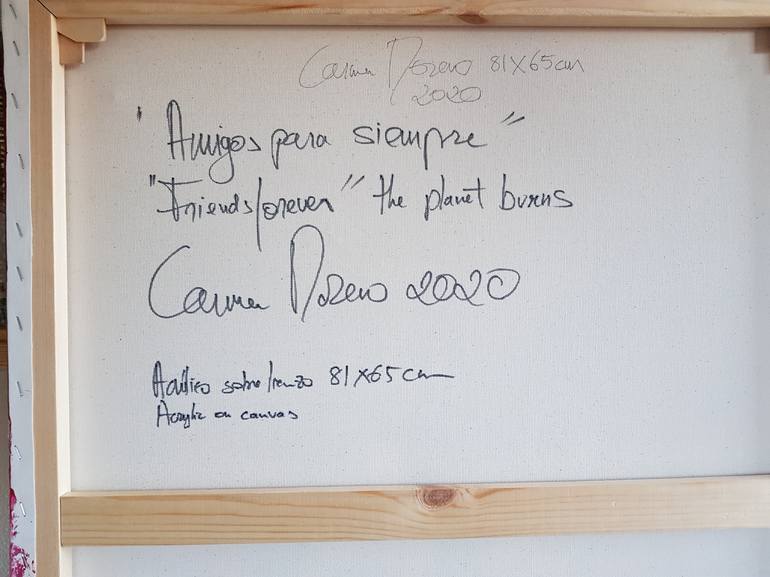 Carmen Moreno 81X65cm
2020
"Amigos para siempre"
"Friends forever" the planet burns
Carmen Moreno 2020
Acrílico sobre lienzo 81X65cm
Acrylic on canvas